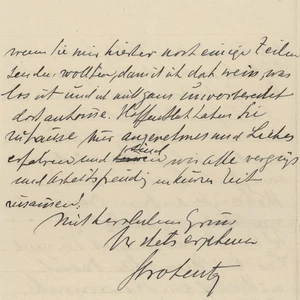 wenn Sie mir hierher noch einige Zeilen
senden wollten, damit ich doch weiss, was
los ist und ich nicht ganz unvorbereitet
dort ankomme. Hoffentlich haben Sie
zuhause nur angenehmes und Liebes
erfahren und sind wir alle vergnügt
und arbeitsfreudig in kurzer Zeit
zusammen.
Mit herzlichem Gruss
Ihr stets ergebener